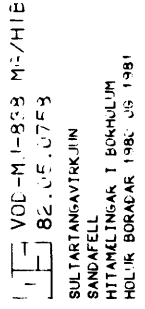 VOD-MJ-898 MÁ/HIB
82.05.0758
SULTARTANGAVIRKJUN
SANDAFELL
HITAMÆLINGAR I BORHOLUM
HOLUR BORADAR 1980 OG 1981